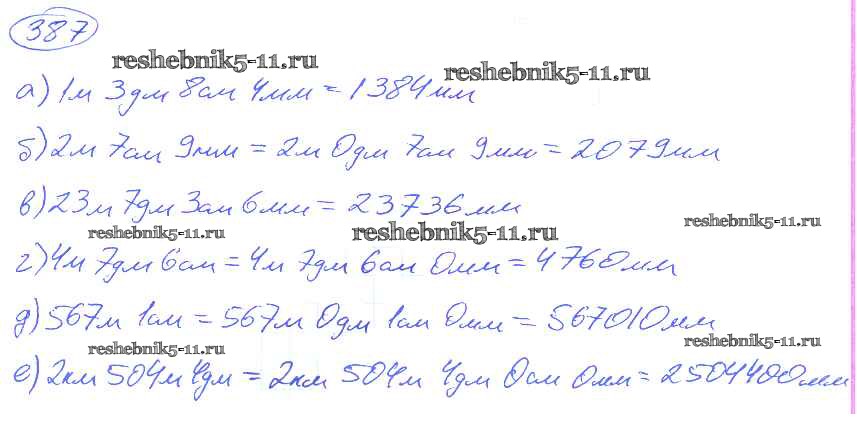 387
reshebnik5-11.ru
reshebnik5-11.ru
а) 1м 3дм 8см 4мм = 1384мм
б) 2м 7см 9мм = 2м 0дм 7см 9мм = 2079мм
в) 23м 7дм 3см 6мм = 23736мм
reshebnik5-11.ru
reshebnik5-11.ru
reshebnik5-11.ru
г) 4м 7дм 6см = 4м 7дм 6см 0мм = 4760мм
д) 567м 1см = 567м 0дм 1см 0мм = 567010мм
reshebnik5-11.ru
reshebnik5-11.ru
е) 2км 504м 4дм = 2км 504м 4дм 0см 0мм = 2504400мм